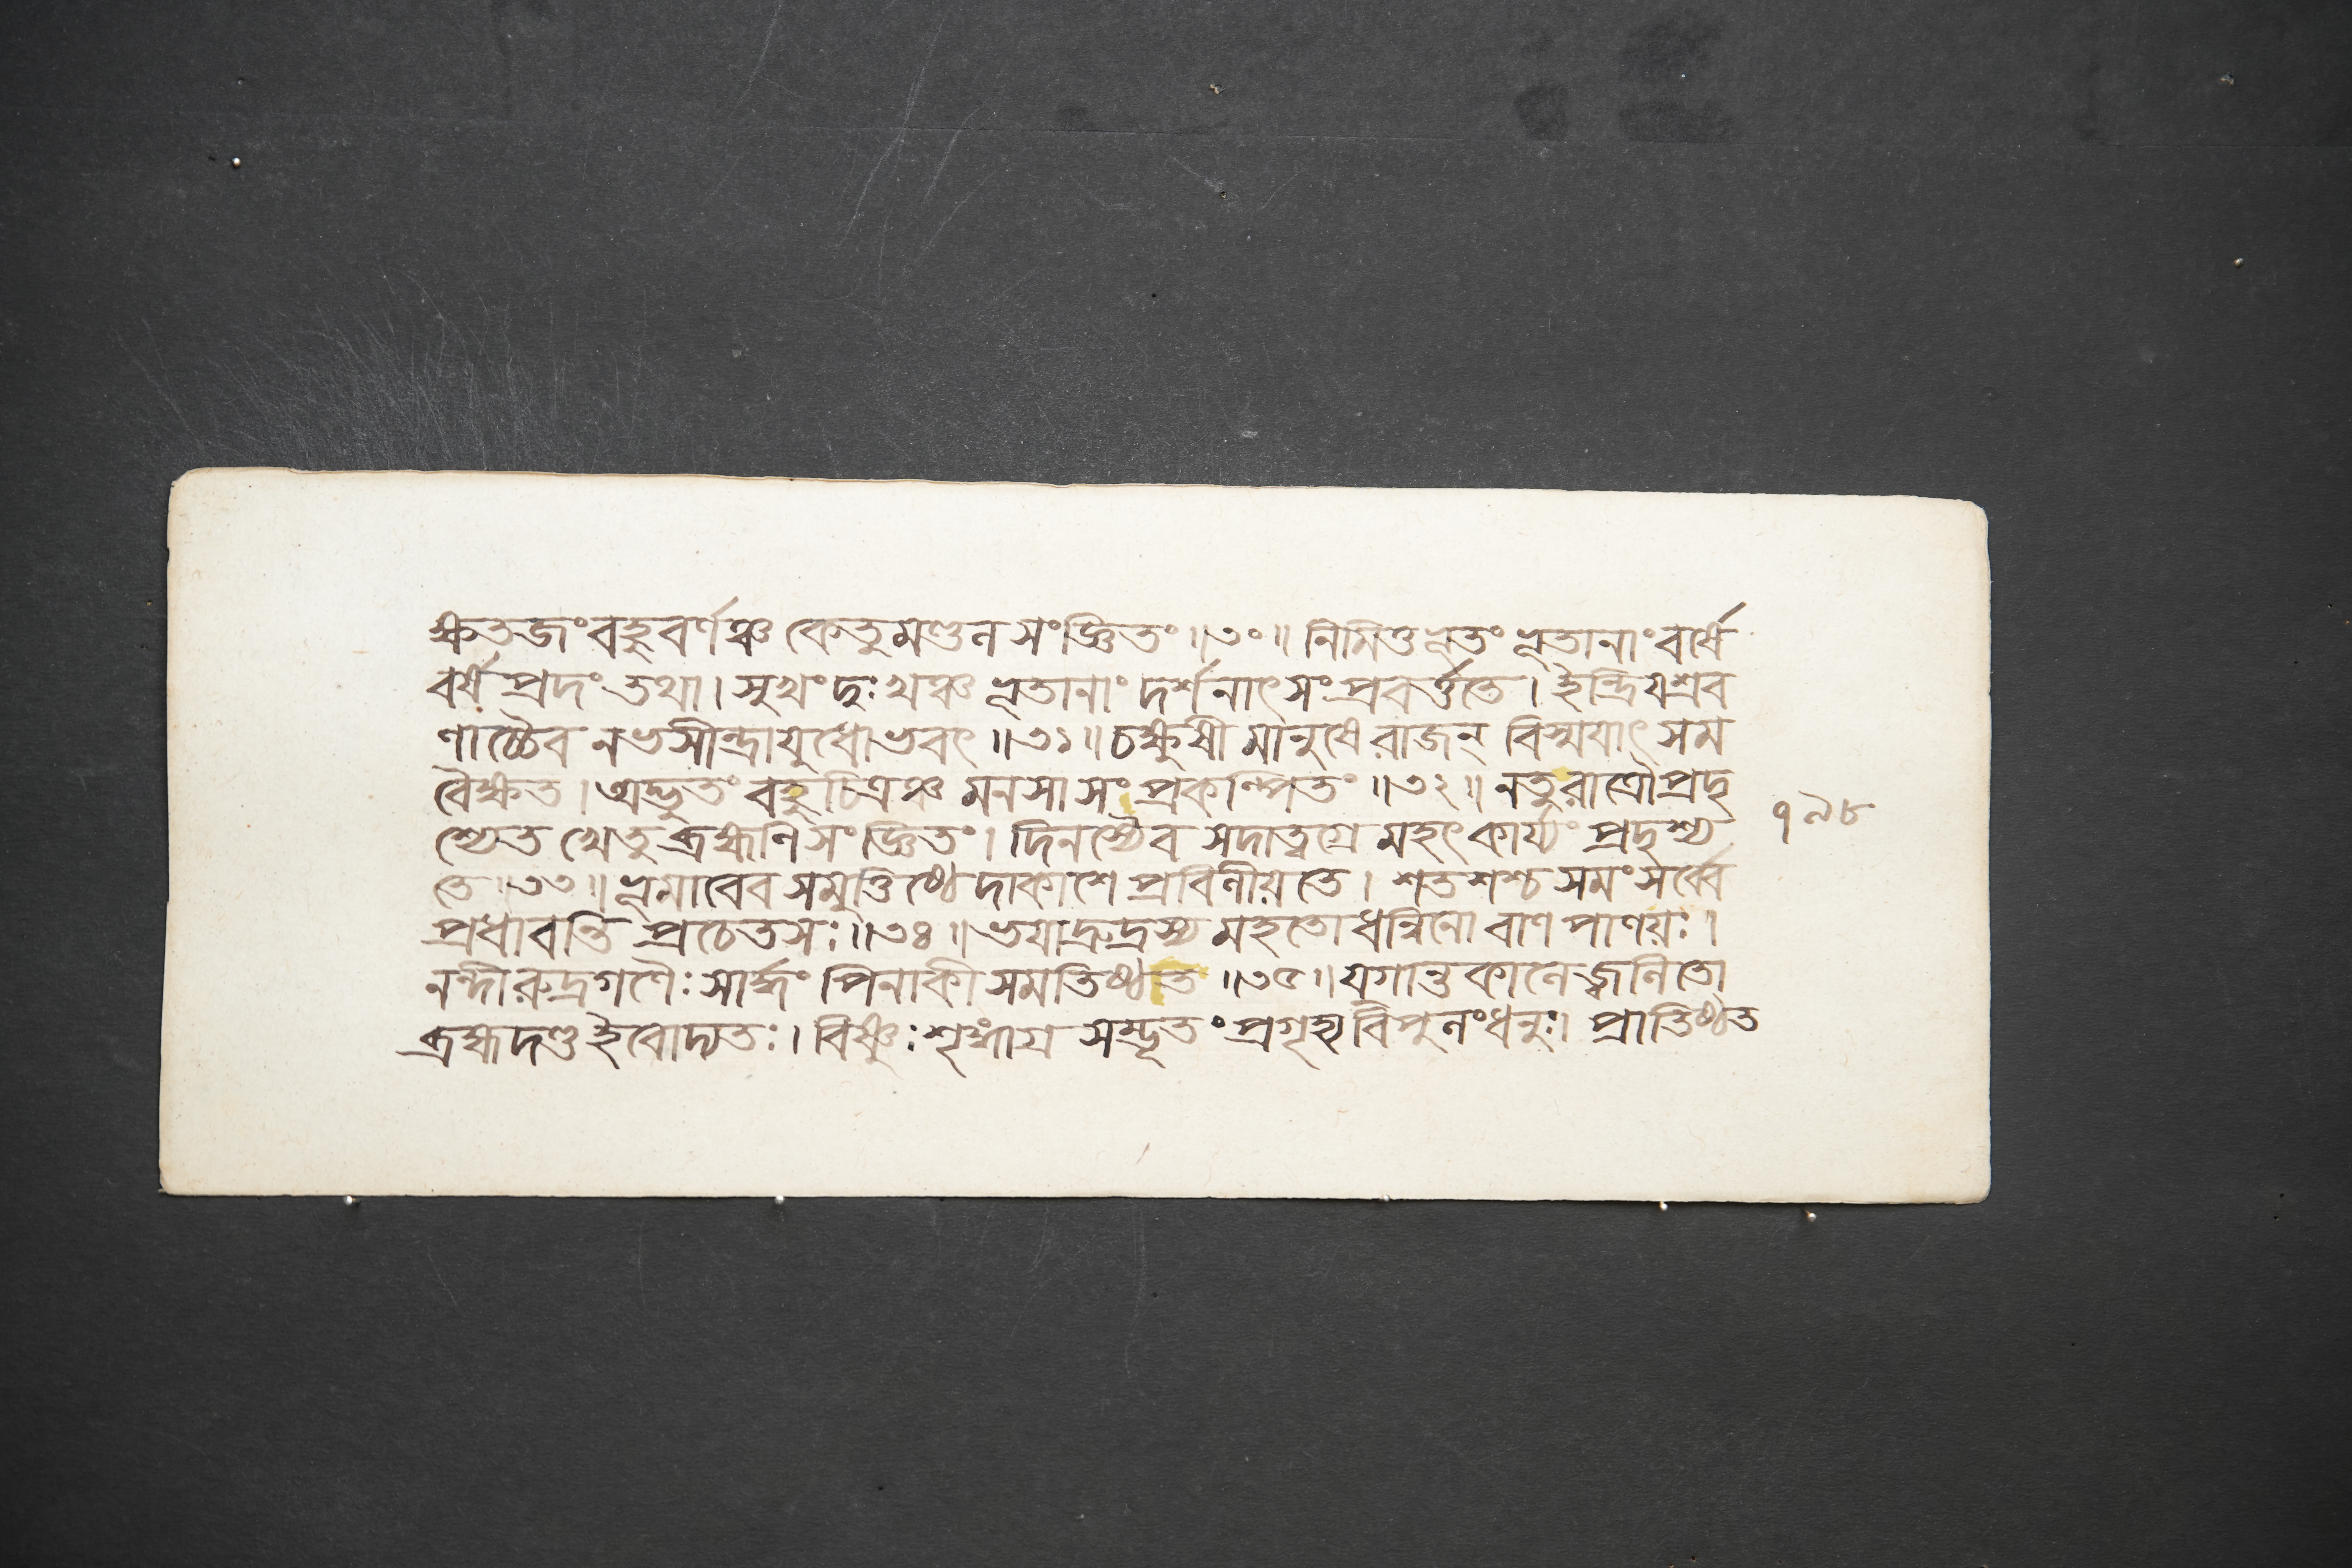 ক্ষিতজং বহুবর্ণঞ্চ কেতুমণ্ডল সংজ্ঞিতং ॥৩০॥ নিমিত্তভূতং ভূতানাং বর্ষে
বর্ষপ্রদং তথা। সুখং দুঃখঞ্চ ভূতানাং দর্শনাৎ সংপ্রবর্ত্ততে। ইন্দ্রিযশ্রব
ণাচ্চৈব নভসীন্দ্রাযুধোভবৎ ॥৩১॥ চক্ষুষী মানুষে রাজন্ বিস্মযাৎ সম
বৈক্ষত। অদ্ভুতং বহুচিত্রঞ্চ মনসা সংপ্রকল্পিতং ॥৩২॥ নতু রাত্রৌপ্রদৃ
শ্যেত খেতু ব্রহ্মণি সংজ্ঞিতং। দিনশ্চৈব সদাত্বগ্রে মহৎ কার্য্যং প্রদৃশ্য
তে ॥৩৩॥ ভূমাবেব সমুত্তিষ্ঠেদাকাশে প্রবিলীয়তে। শতশশ্চ সমং সর্ব্বে
প্রধাবন্তি প্রচেতসঃ ॥৩৪॥ ভযাদ্রুদ্রস্য মহতো ধন্বিনো বাণ পাণয়ঃ।
নন্দীরুদ্রগণৈঃ সার্দ্ধং পিনাকী সমতিষ্ঠত ॥৩৫॥ যুগান্তকালে জ্বলিতো
ব্রহ্মদণ্ড ইবোদ্যতঃ। বিষ্ণুঃ শৃঙ্গাগ্র সম্ভূতং প্রগৃহ্য বিপুলং ধনুঃ। প্রাতিষ্ঠত
১৯৮